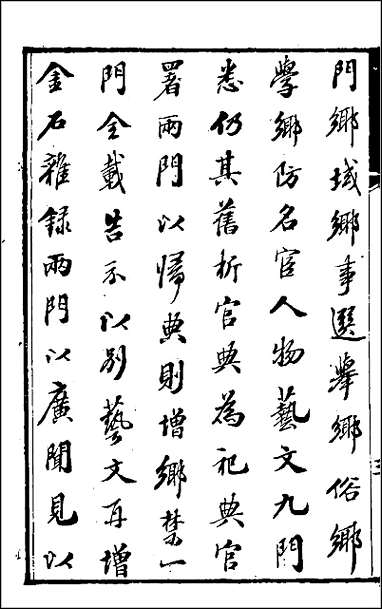 門鄉域鄉事選舉鄉俗鄉
學鄉防名宦人物藝文九門
悉仍其舊析官典為祀典官
署兩門以歸典則增鄉禁一
門全載告示以別藝文再增
金石雜録兩門以廣聞見以